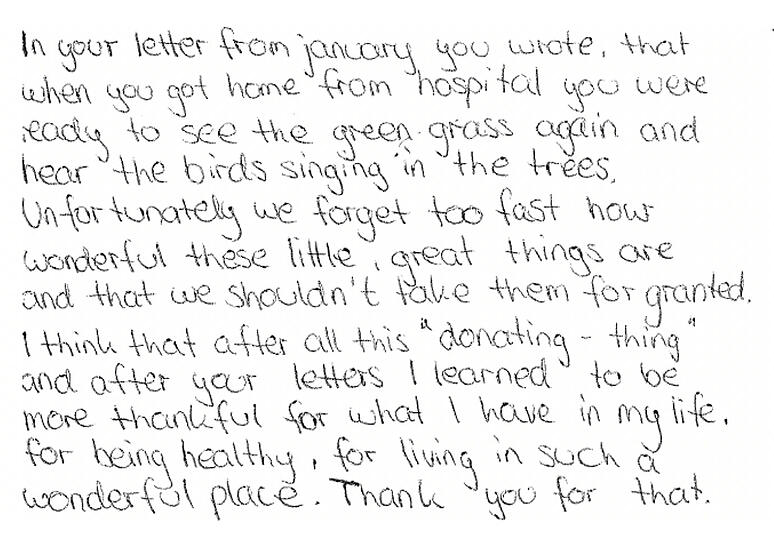 In your letter from january you wrote, that
when you got home from hospital you were
ready to see the green grass again and
hear the birds singing in the trees.
Unfortunately we forget too fast how
wonderful these little, great things are
and that we shouldn't take them for granted.
I think that after all this "donating - thing"
and after your letters I learned to be
more thankful for what I have in my life,
for being healthy, for living in such a
wonderful place. Thank you for that.